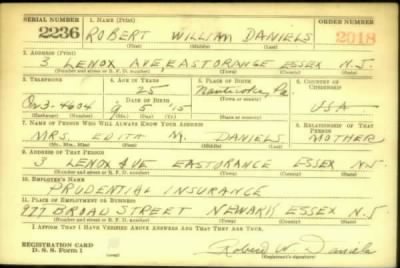 SERIAL NUMBER 1. NAME (Print) ORDER NUMBER
2236 ROBERT WILLIAM DANIELS 2018
(First) (Middle) (Last)
2. ADDRESS (Print)
3 LENOX AVE, EASTORANGE ESSEX N.J.
(Number and street or R. F. D. number) (Town) (County) (State)
3. TELEPHONE 4. AGE IN YEARS 5. PLACE OF BIRTH 6. COUNTRY OF CITIZENSHIP
25 Nanticoke Pa
DATE OF BIRTH (Town or county)
Or 3-4604 9 5 15 USA
(Exchange) (Number) (Mo.) (Day) (Yr.) (State or country)
7. NAME OF PERSON WHO WILL ALWAYS KNOW YOUR ADDRESS 8. RELATIONSHIP OF THAT PERSON
MRS. EDITH M. DANIELS MOTHER
(Mr., Mrs., Miss) (First) (Middle) (Last)
9. ADDRESS OF THAT PERSON
3 LENOX AVE EASTORANGE ESSEX NJ
(Number and street or R. F. D. number) (Town) (County) (State)
10. EMPLOYER'S NAME
PRUDENTIAL INSURANCE
11. PLACE OF EMPLOYMENT OR BUSINESS
977 BROAD STREET NEWARK ESSEX N.J
(Number and street or R. F. D. number) (Town) (County) (State)
I AFFIRM THAT I HAVE VERIFIED ABOVE ANSWERS AND THAT THEY ARE TRUE.
REGISTRATION CARD
D. S. S. Form 1 Robert W. Daniels
(Registrant's signature)